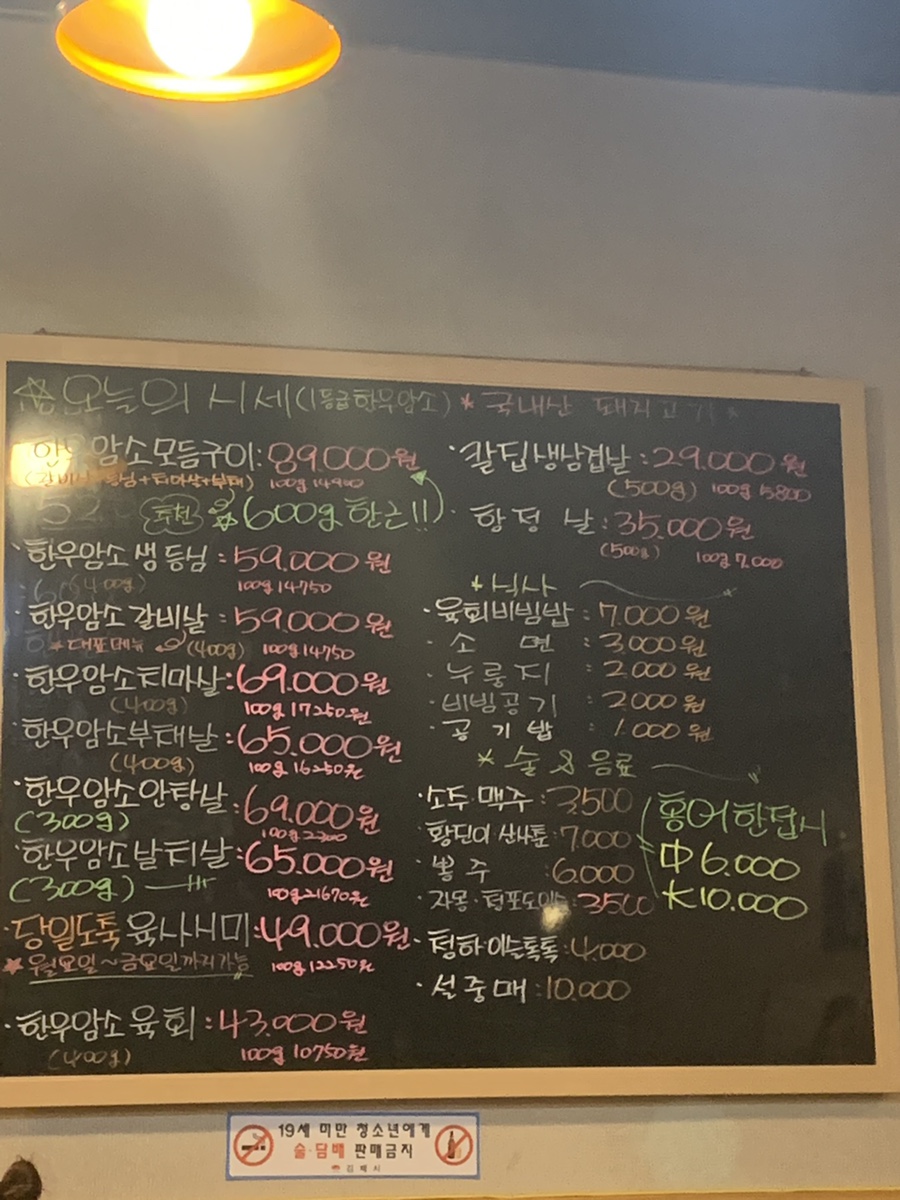 오늘의 시세(1등급한우암소)
한우암소모듬구이:89.000원
100g 14900
추천 600g 한근!!)
한우암소 생등심:59.000원
(400g) 100g 14750
한우암소 갈비살:59.000원
*대표메뉴 (400g) 100g 14750
한우암소치마살:69.000원
(400g) 100g 17250원
한우암소부채살:65.000원
(400g) 100g 16250원
한우암소안창살:69.000원
(300g) 100g 2300
한우암소살치살:65.000원
(300g) 100g 21670원
당일도축 육사시미:49.000원
*월요일~금요일까지가능 100g 12250원
한우암소육회:43.000원
(400g) 100g 10750원
* 국내산 돼지고기 *
칼집생삼겹살:29.000원
(500g) 100g 5800
항정살:35.000원
(500g) 100g 7.000
* 식사
육회비빔밥:7.000원
소면:3.000원
누룽지:2.000원
비빔공기:2.000원
공기밥:1.000원
* 술 & 음료
소주·맥주:3,500
황진이·산사춘:7.000
뽕주:6.000
자몽·청포도이슬:3500
청하·이슬톡톡:4.000
설중매:10.000
홍어한접시
中 6.000
大 10.000
19세 미만 청소년에게
술·담배 판매금지
김해시